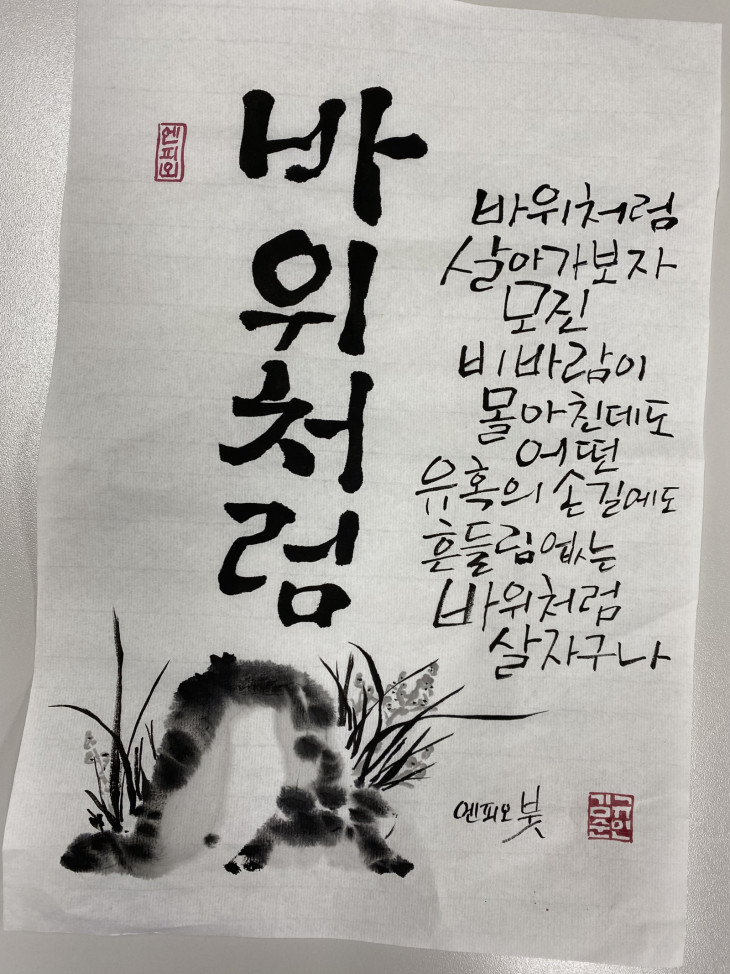 엔피오
바위처럼
바위처럼
살아가보자
모진
비바람이
몰아친데도
어떤
유혹의 손길에도
흔들림없는
바위처럼
살자구나
엔피오 붓